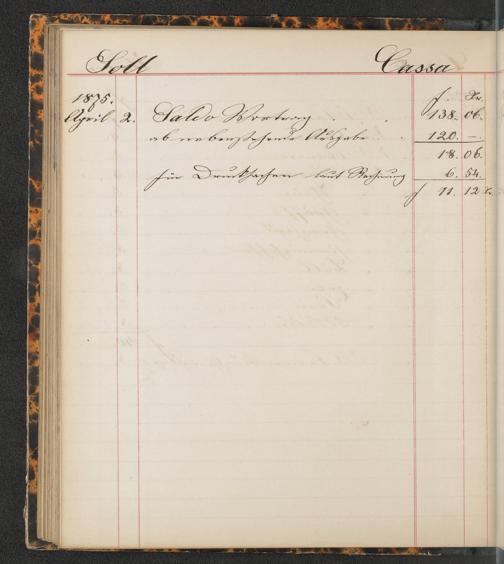 Soll Cassa
1875. f. Xr.
April 2. Saldo Vortrag . . 138. 06.
ab nebenstehende Ausgabe . 120. –.
18. 06.
für Drucksachen laut Rechnung 6. 54.
f 11. 12 Xr.